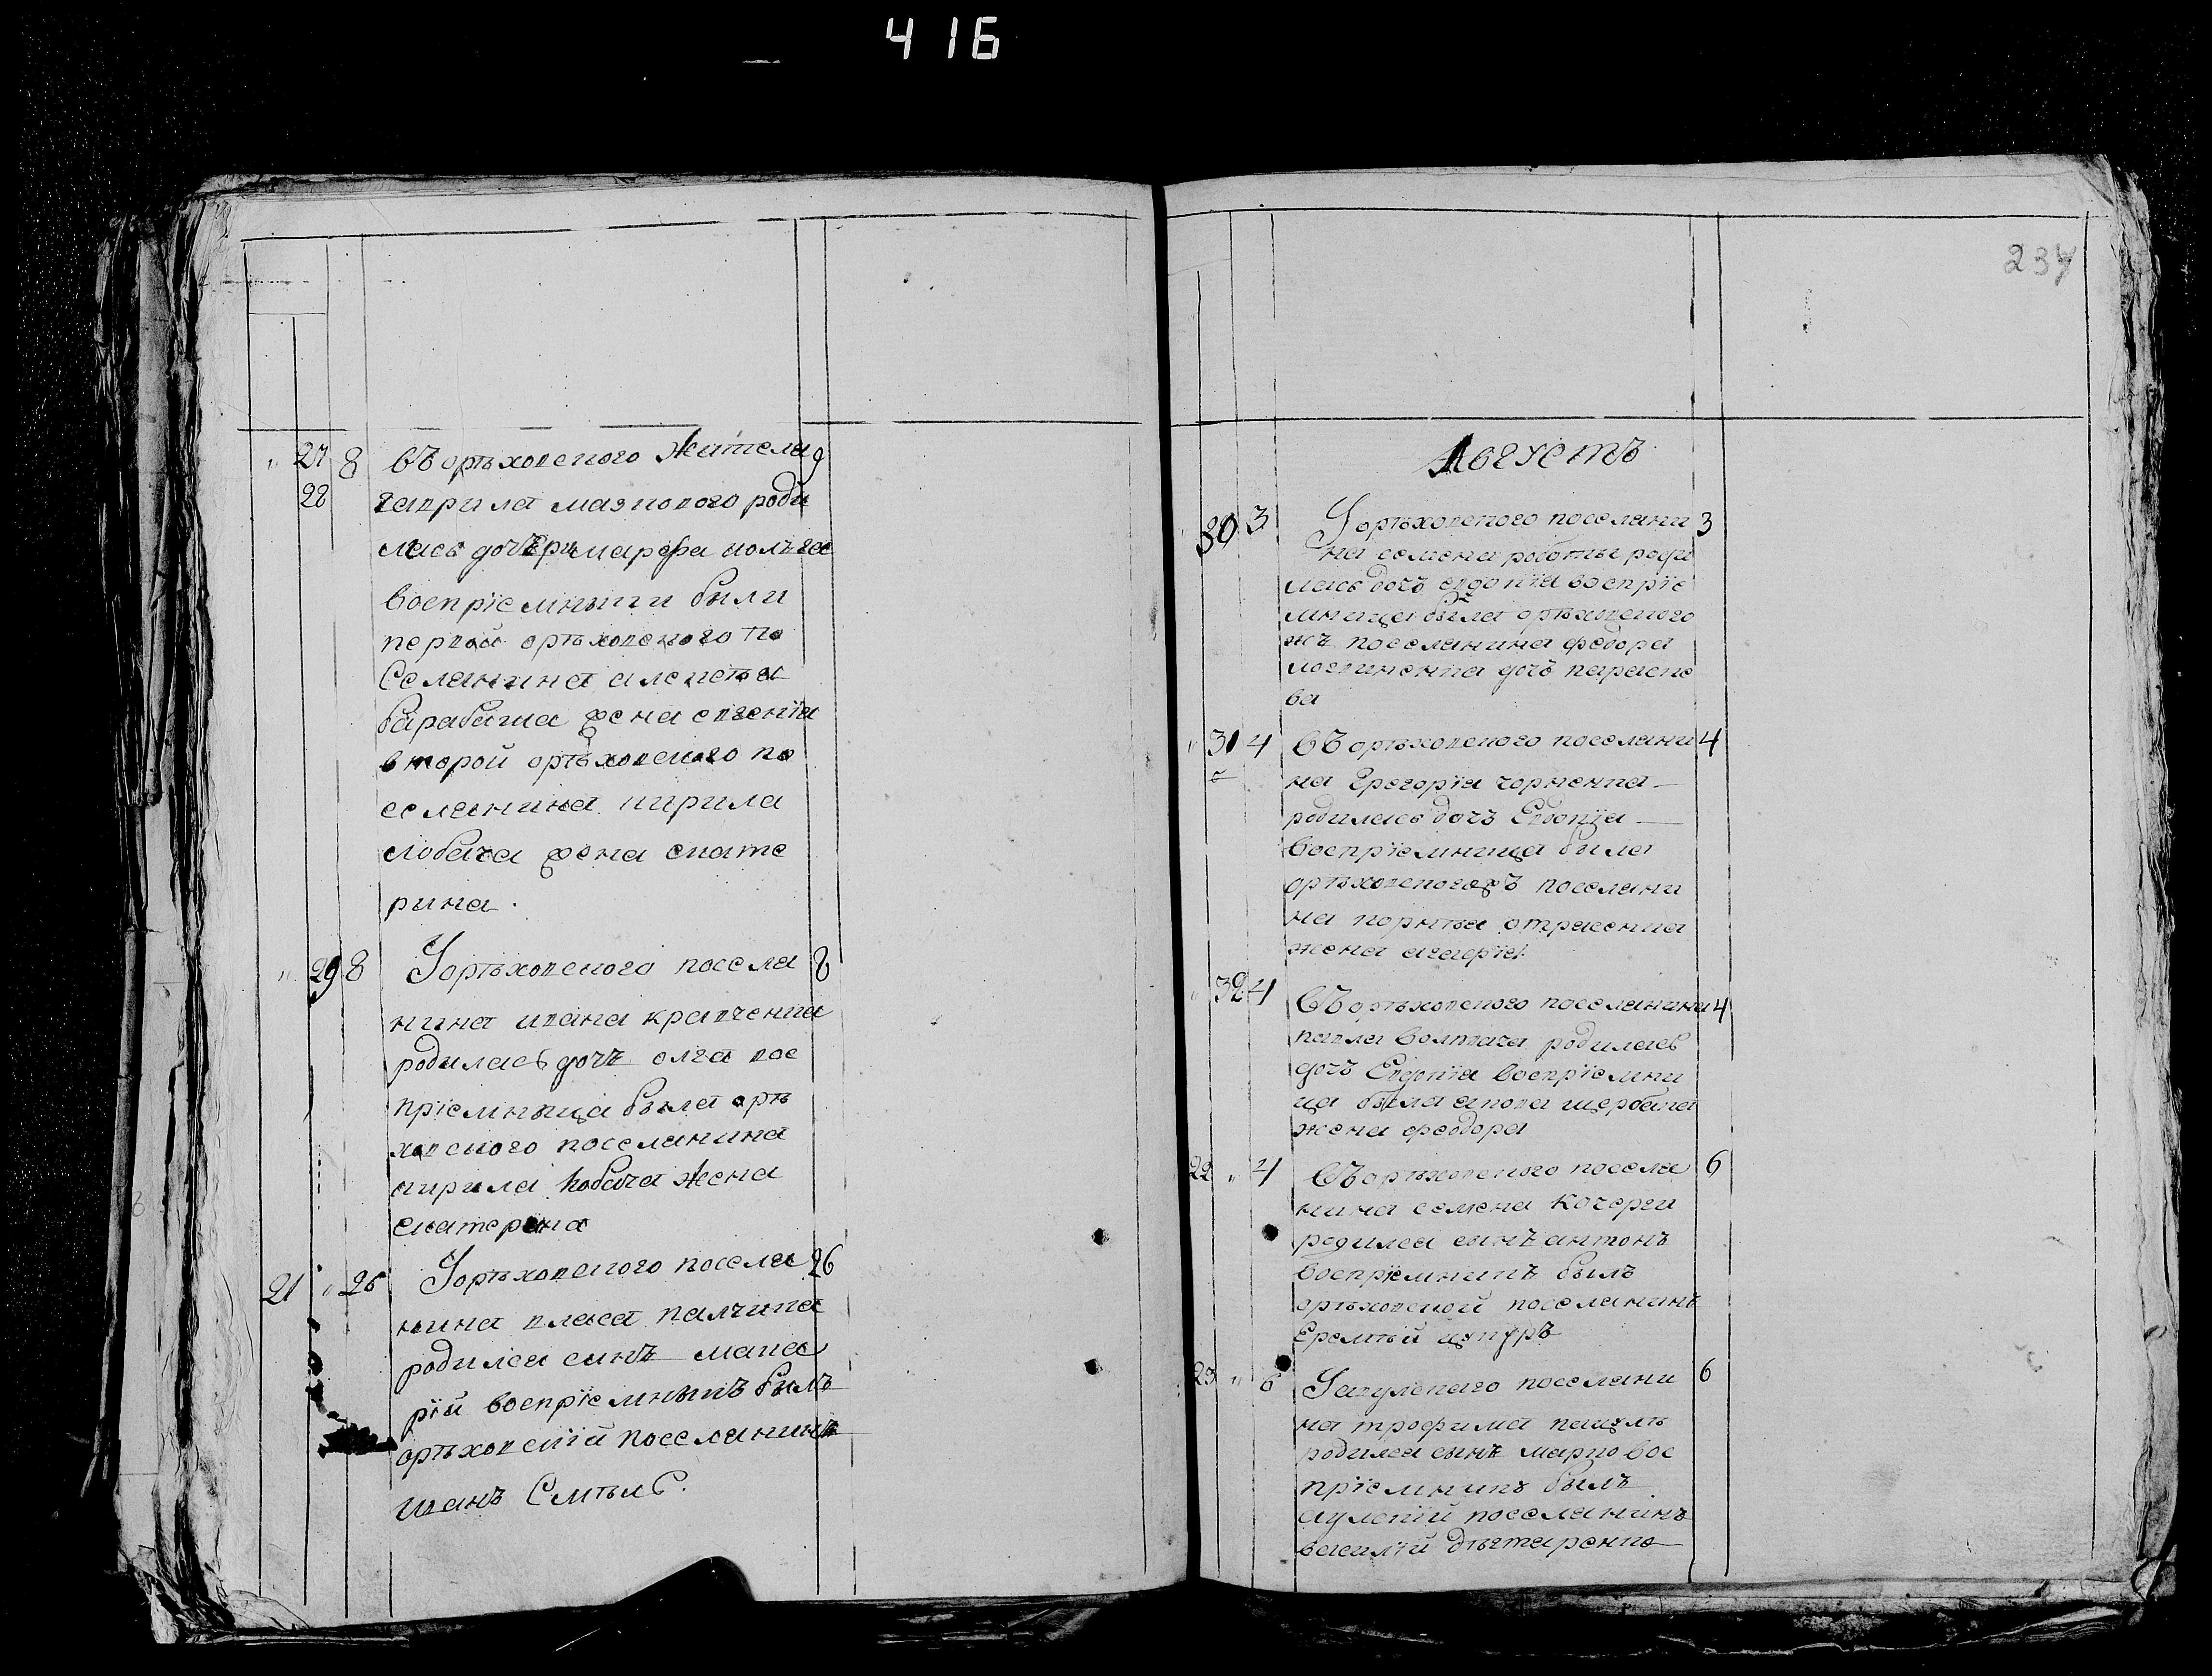 416
234
" 27 8 въ орѣховского жителя 9
28 гаврила мазнового роди
лась дочери марфа пользе
воспріемныци были
первой орѣховского по
Селянина алексѣя
барабаша жена евгенія
второй орѣховского по
селянина кирила
лобача жена екате
рина.
" 29 8 Уорѣховского посела 8
нина ивана кравченка
родилась дочъ олга вос
пріемныца была орѣ
ховского поселянина
кирила лобача жена
екатерина
21 " 26 Уорѣховского посела 26
нина власа палчика
родилса синъ мака
рій воспріемныкъ былъ
орѣховскій поселянинъ
иванъ
Августъ
" 30 3 Уорѣховского поселяни 3
на семена роботы роди
лась дочъ евдокія воспріе
мница была орѣховского
жъ поселянина федора
логвиненка дочъ параске
ва
" 31 4 въ орѣховского поселяни 4
на Григорія чорненка
родилась дочъ Евдокія
воспріемница была
орѣховскогожъ поселяни
на корнѣя отрасенка
жена агафія
" 32 4 въ орѣховского поселянина 4
павла волвача родилась
дочъ Евдокія воспріемни
ца была якова щербака
жена феодора
22 " 4 въ орѣховского посела 6
нина семена кочерги
родилса сынъ антонъ
воспріемникъ былъ
орѣховской поселянинъ
Еремѣй цупуръ
23 " 6 поселяни 6
на трофима
родилса сынъ марко вос
пріемникъ былъ
поселянинъ
василій дѣхтаренко